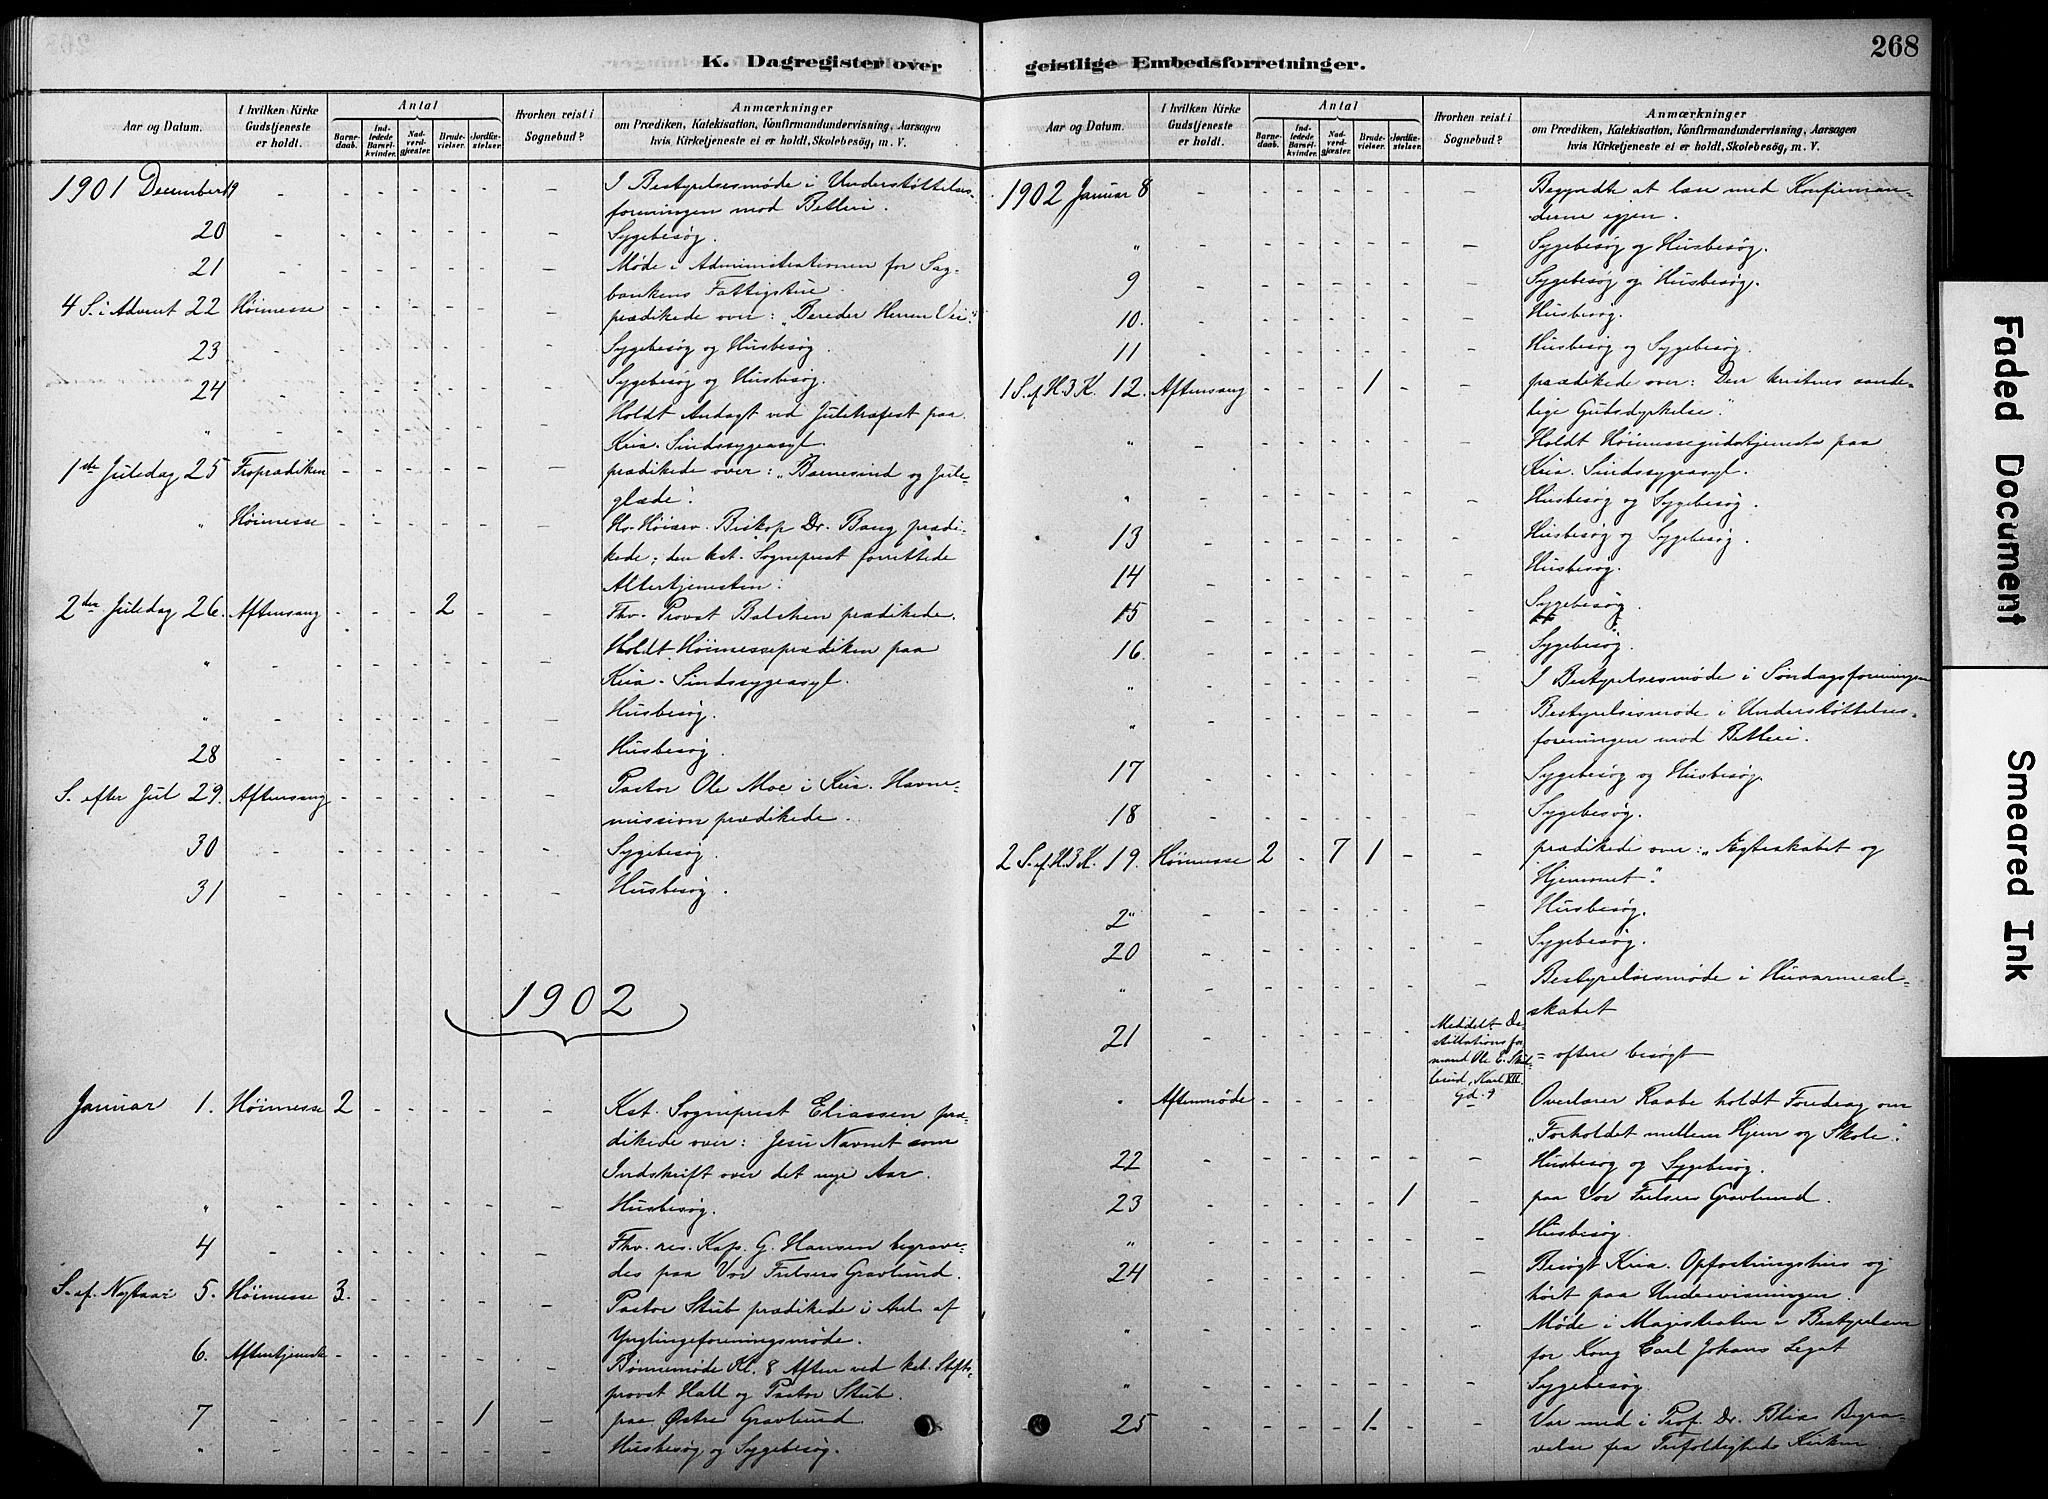 268
K. Dagregister over
Aar og Datum.
I hvilken Kirke Gudstjeneste er holdt.
Antal
Barnedaab.
Indledede Barselkvinder.
Nadverdgjæster.
Brudevielser.
Jordfæstelser.
Hvorhen reist i Sognebud?
Anmærkninger
om Prædiken, Katekisation, Konfirmandundervisning, Aarsagen
hvis Kirketjeneste ei er holdt, Skolebesøg, m. V.
1901 December 19 - - - - - - - I Bestyrelsesmøde i Understøttelses-
foreningen mod Betleri.
20 - - - - - - - Sygebesøg.
21 - - - - - - - Møde i Administrationen for Sag-
bankens Fattigstue.
4 S. i Advent 22 Høimesse - - - - - - prædikede over: „Bereder Herren Vei".
23 - - - - - - - Sygebesøg og Husbesøg.
24 - - - - - - - Sygebesøg og Husbesøg.
" - - - - - - - Holdt Andagt ved Juletræfest paa
Kria. Sindssygeasyl.
1ste Juledag 25 Froprædiken - - - - - - prædikede over: „Barnesind og Jule-
glæde".
" Høimesse - - - - - - Hs. Høiærv. Biskop Dr. Bang prædi-
kede; den kst. Sogneprest forrettede
Altertjenesten.
2den Juledag 26. Aftensang - - - 2 - - Fhv. Provst Balchen prædikede.
" - - - - - - - Holdt Høimesseprædiken paa
Kria. Sindssygeasyl.
" - - - - - - - Husbesøg.
28 - - - - - - - Husbesøg.
S. efter Jul 29. Aftensang - - - - - - Pastor Ole Moe i Kria. Havne-
mission prædikede.
30 - - - - - - - Sygebesøg.
31 - - - - - - - Husbesøg.
1902
Januar 1. Høimesse 2 - - - - - Kst. Sogneprest Eliassen præ-
dikede over: Jesu Navnet som
Indskrift over det nye Aar.
" - - - - - - - Husbesøg.
4 - - - - - - - Fhv. res. Kap. G. Hansen begrave-
des paa Vor Frelsers Gravlund.
S. ef. Nytaar 5. Høimesse 3. - - - - - Pastor Stub prædikede i Anl. af
Ynglingeforeningsmøde.
6. Aftentjeneste - - - - - - Bønnemøde Kl. 8 Aften ved kst. Stifts-
provst Hall og Pastor Stub.
7 - - - - - 1 - paa Østre Gravlund
" - - - - - - - Husbesøg og Sygebesøg.
geistlige Embedsforretninger.
Aar og Datum.
I hvilken Kirke Gudstjeneste er holdt.
Antal
Barnedaab.
Indledede Barselkvinder.
Nadverdgjæster.
Brudevielser.
Jordfæstelser.
Hvorhen reist i Sognebud?
Anmærkninger
om Prædiken, Katekisation, Konfirmandundervisning, Aarsagen
hvis Kirketjeneste ei er holdt, Skolebesøg, m. V.
1902 Januar 8 - - - - - - - Begyndte at læse med Konfirman-
derne igjen.
" - - - - - - - Sygebesøg og Husbesøg.
9 - - - - - - - Sygebesøg og Husbesøg.
10. - - - - - - - Husbesøg.
11 - - - - - - - Husbesøg og Sygebesøg.
1 S. ef. H. 3 K. 12. Aftensang - - - 1 - - prædikede over: Den kristnes aande-
lige Gudsdyrkelse."
" - - - - - - - Holdt Høimessegudstjeneste paa
Kria. Sindssygeasyl.
" - - - - - - - Husbesøg og Sygebesøg.
13 - - - - - - - Husbesøg og Sygebesøg.
14 - - - - - - - Husbesøg.
15 - - - - - - - Sygebesøg.
16. - - - - - - - Sygebesøg.
" - - - - - - - I Bestyrelsesmøde i Søndagsforeningen
" - - - - - - - Bestyrelsesmøde i Understøttelses-
foreningen mod Betleri.
17 - - - - - - - Sygebesøg og Husbesøg.
18 - - - - - - - Sygebesøg.
2 S. ef. H. 3 K. 19. Høimesse 2 - 7 1 - - prædikede over: „Ægteskabet og
Hjemmet".
2" - - - - - - - Husbesøg.
20 - - - - - - - Sygebesøg.
" - - - - - - - Bestyrelsesmøde i Husarmesel-
skabet
21 - - - - - - Meddelt De-
stillations for-
mand Ole E. Stub-
berud, Karl XII.
Gd. 9
= oftere besøgt
" Aftenmøde - - - - - Overlærer Raabe holdt Foredrag om
„Forholdet mellem Hjem og Skole."
22 - - - - - - - Husbesøg og Sygebesøg.
23 - - - - - 1 - paa Vor Frelsers Gravlund.
" - - - - - - - Husbesøg.
24 - - - - - - - Besøgt Kria. Opfostringshus og
hørt paa Undervisningen.
" - - - - - - - Møde i Magistraten i Bestyrelsen
for Kong Carl Johans Legat
" - - - - - - - Sygebesøg.
25 - - - - 1 - - Var med i Prof. Dr. Blixs Begra-
velse fra Trefoldigheds Kirken
Faded Document
Smeared Ink